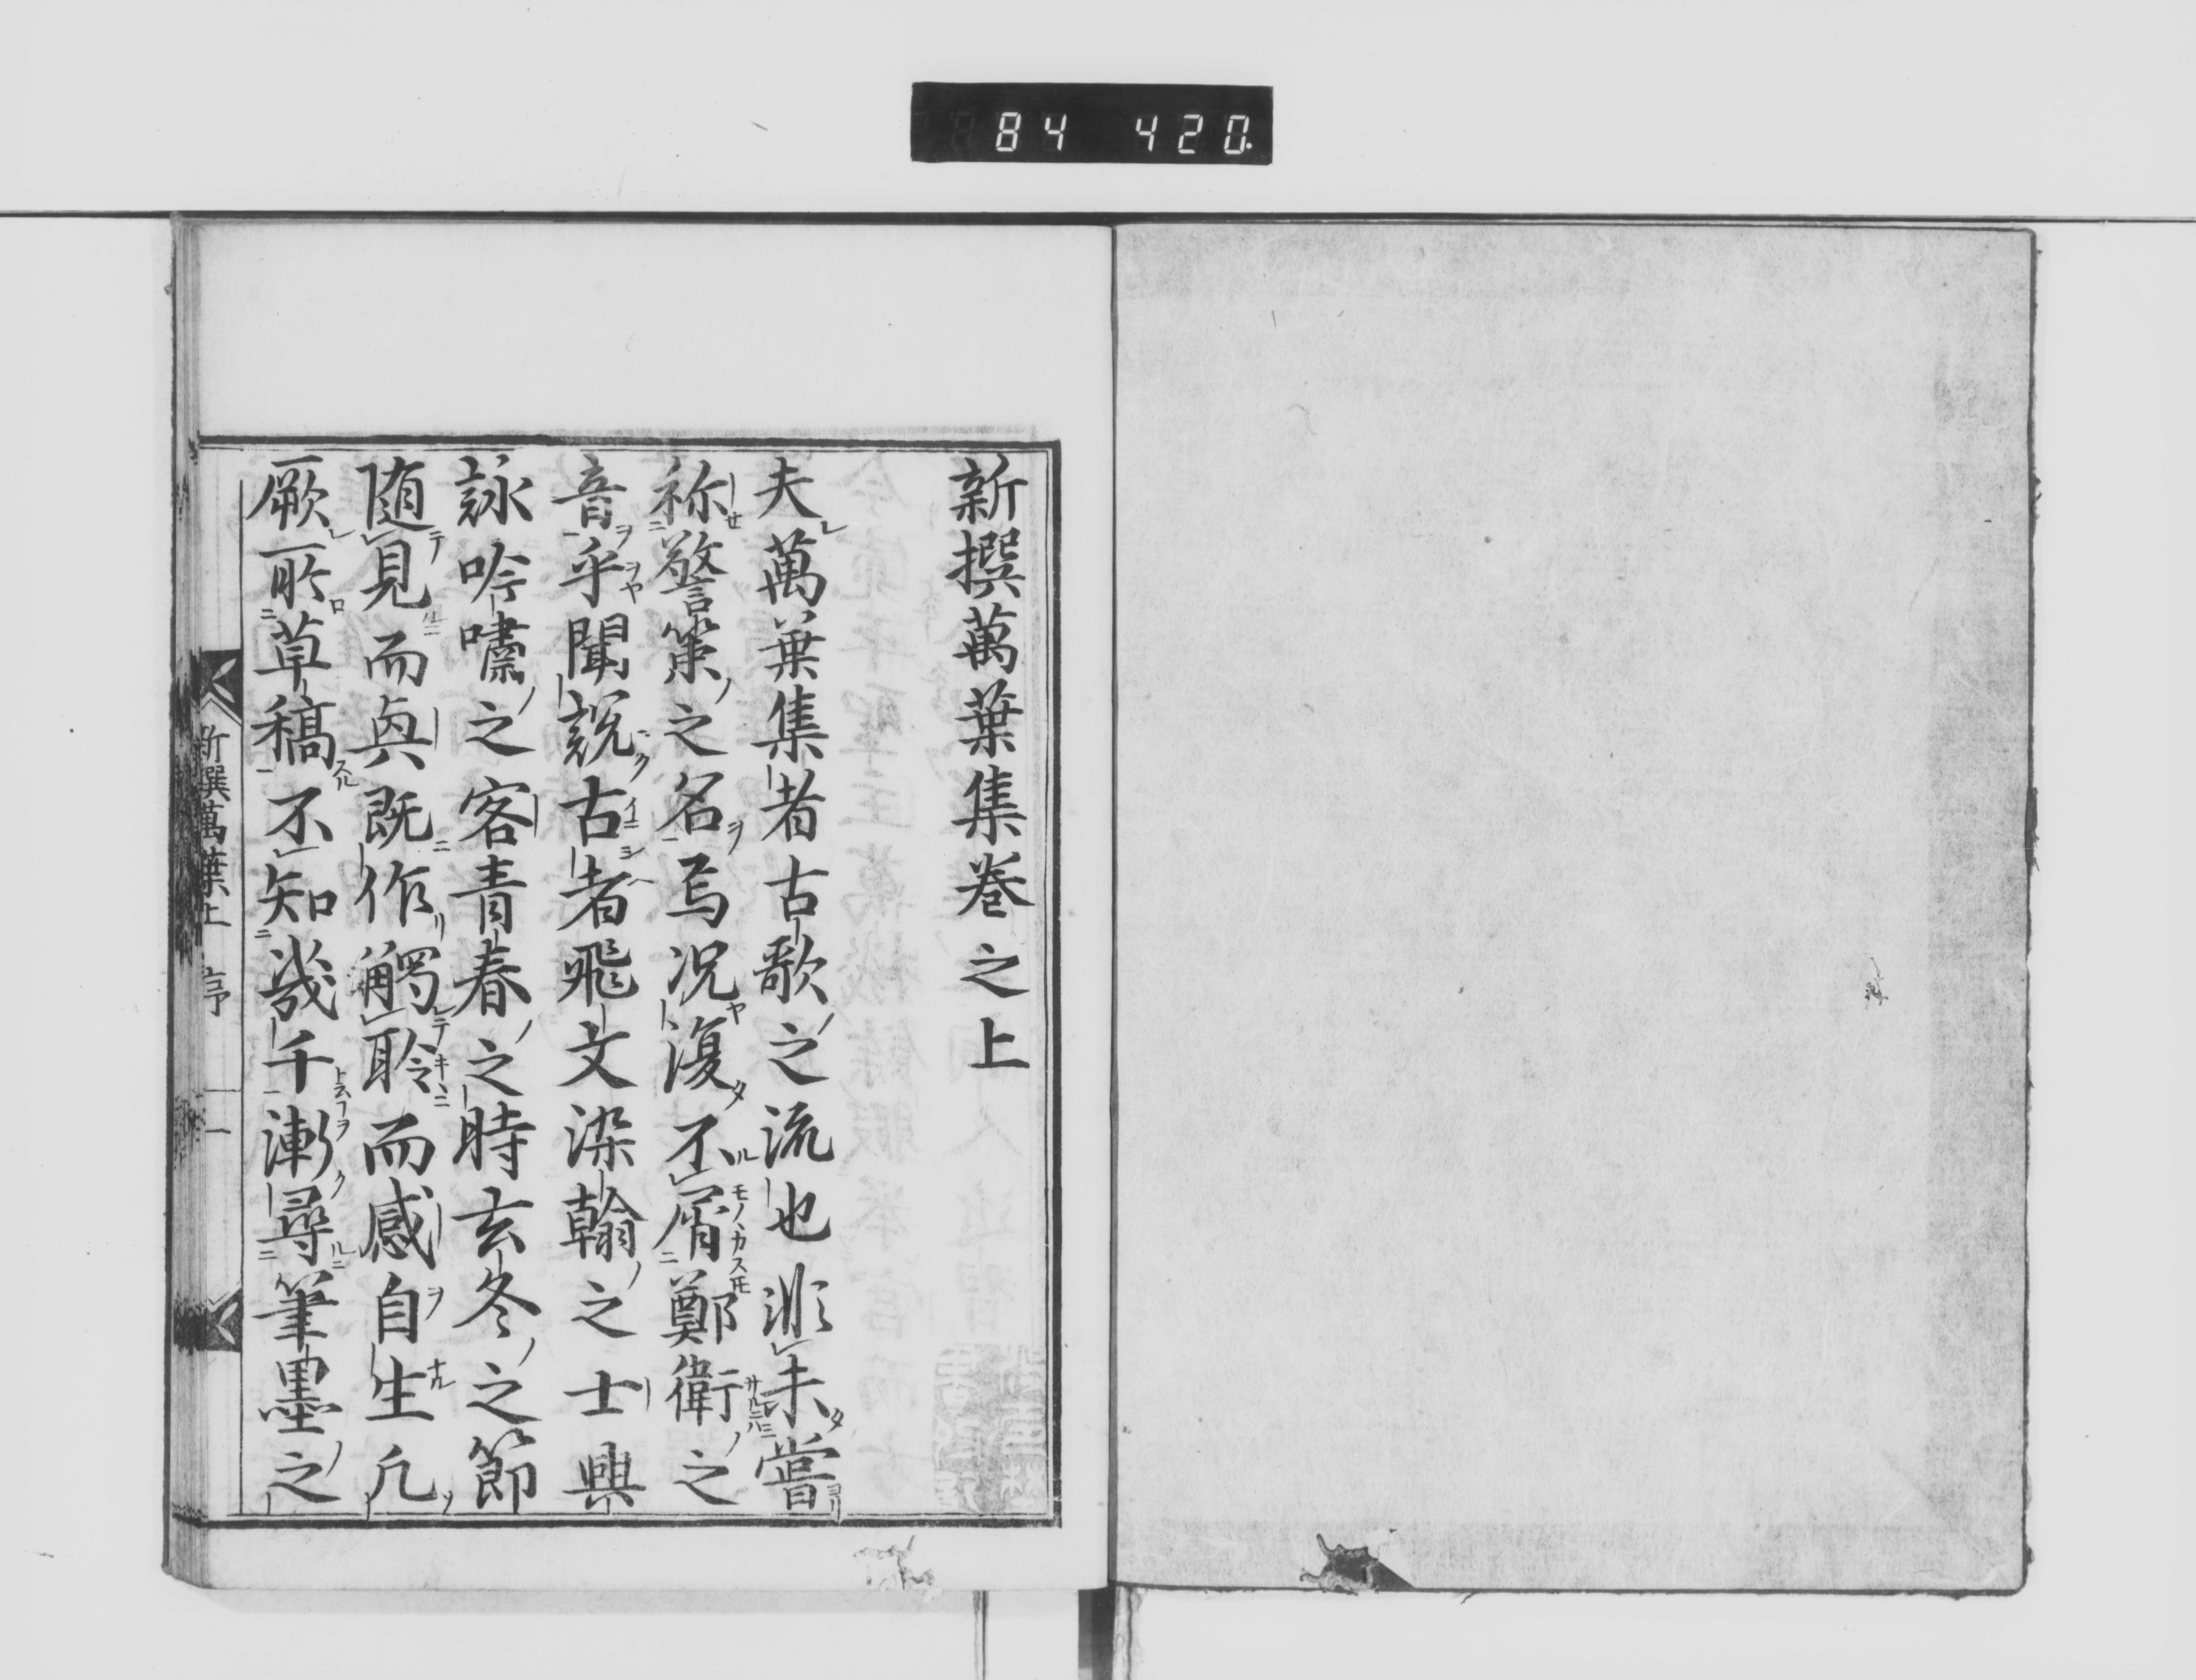 84 420.
新撰萬葉集巻之上
夫萬葉集者古歌之流也非未嘗
称警策之名焉況復不屑鄭衛之
音乎聞説古者飛文染翰之士興
詠吟嘯之客青春之時玄冬之節
随見而興既作觸聆而感自生凡
厥所草稿不知幾千漸尋筆墨之
新撰萬葉上 序 一